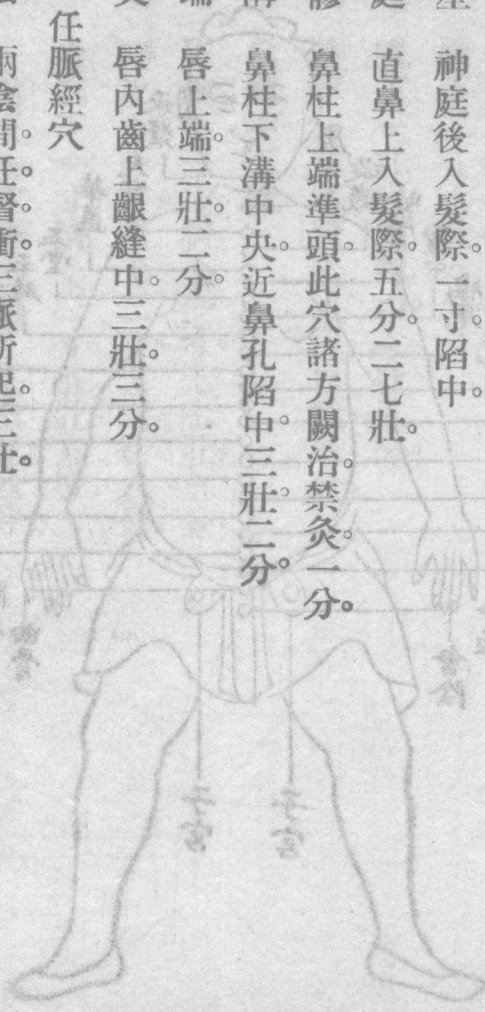 神庭後入髮際一寸。陷中。
直鼻上入髮際。五分二七壯。
鼻柱上端準頭。此穴諸方闕治。禁灸。一分。
鼻柱下溝中央。近鼻孔陷中。三壯。二分。
唇上端。三壯。二分。
唇內齒上齦縫中。三壯。三分。
任脈經穴
兩陰間。任。督。衝。三脈所起。三壯。